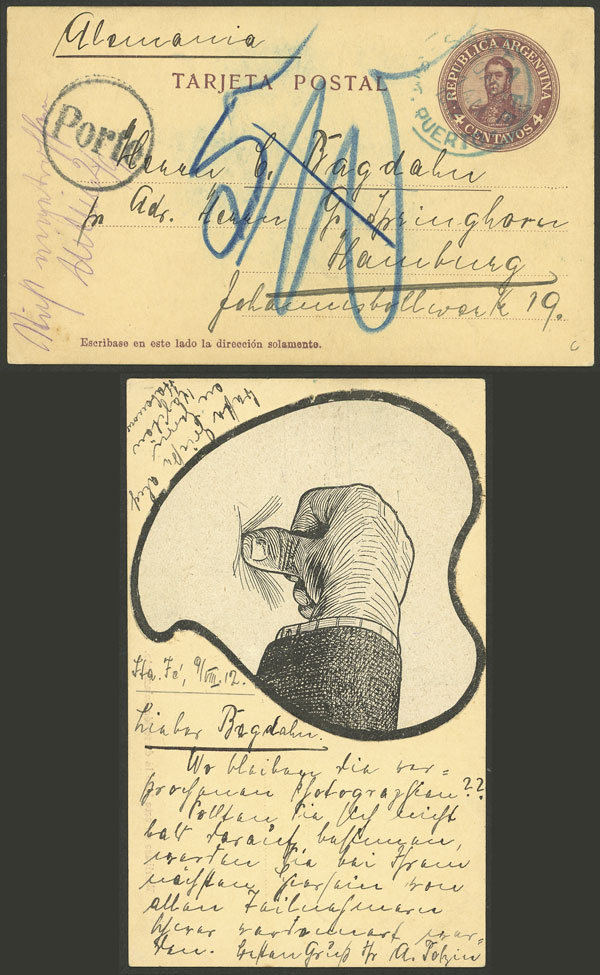 Alemania
TARJETA POSTAL
REPUBLICA ARGENTINA
4 CENTAVOS 4
PUERTO
Porto
5/10
Herrn C. Bagdahn
pr Adr. Herrn P. Springhorn
Hamburg
Johannisbollwerk 19.
Escribase en este lado la dirección solamente.
Beste Grüße auch
an Herrn
Kapitän
Sta. Fé, 9/VIII.12.
Lieber Bagdahn.
Wo bleiben die ver=
sprochenen Photographien??
Sollten Sie sich nicht
bald darauf besinnen,
werden Sie bei Ihrem
nächsten Hiersein von
allen Teilnehmern
schwer verdonnert wer=
den. Besten Gruß Ihr A. Tobzin